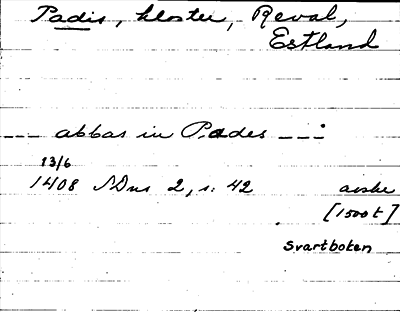 Padis, kloster, Reval,
Estland
--- abbas in Pades ---:
13/6
1408 NDns 2, s. 42 avskr
[1500t]
Svartboken